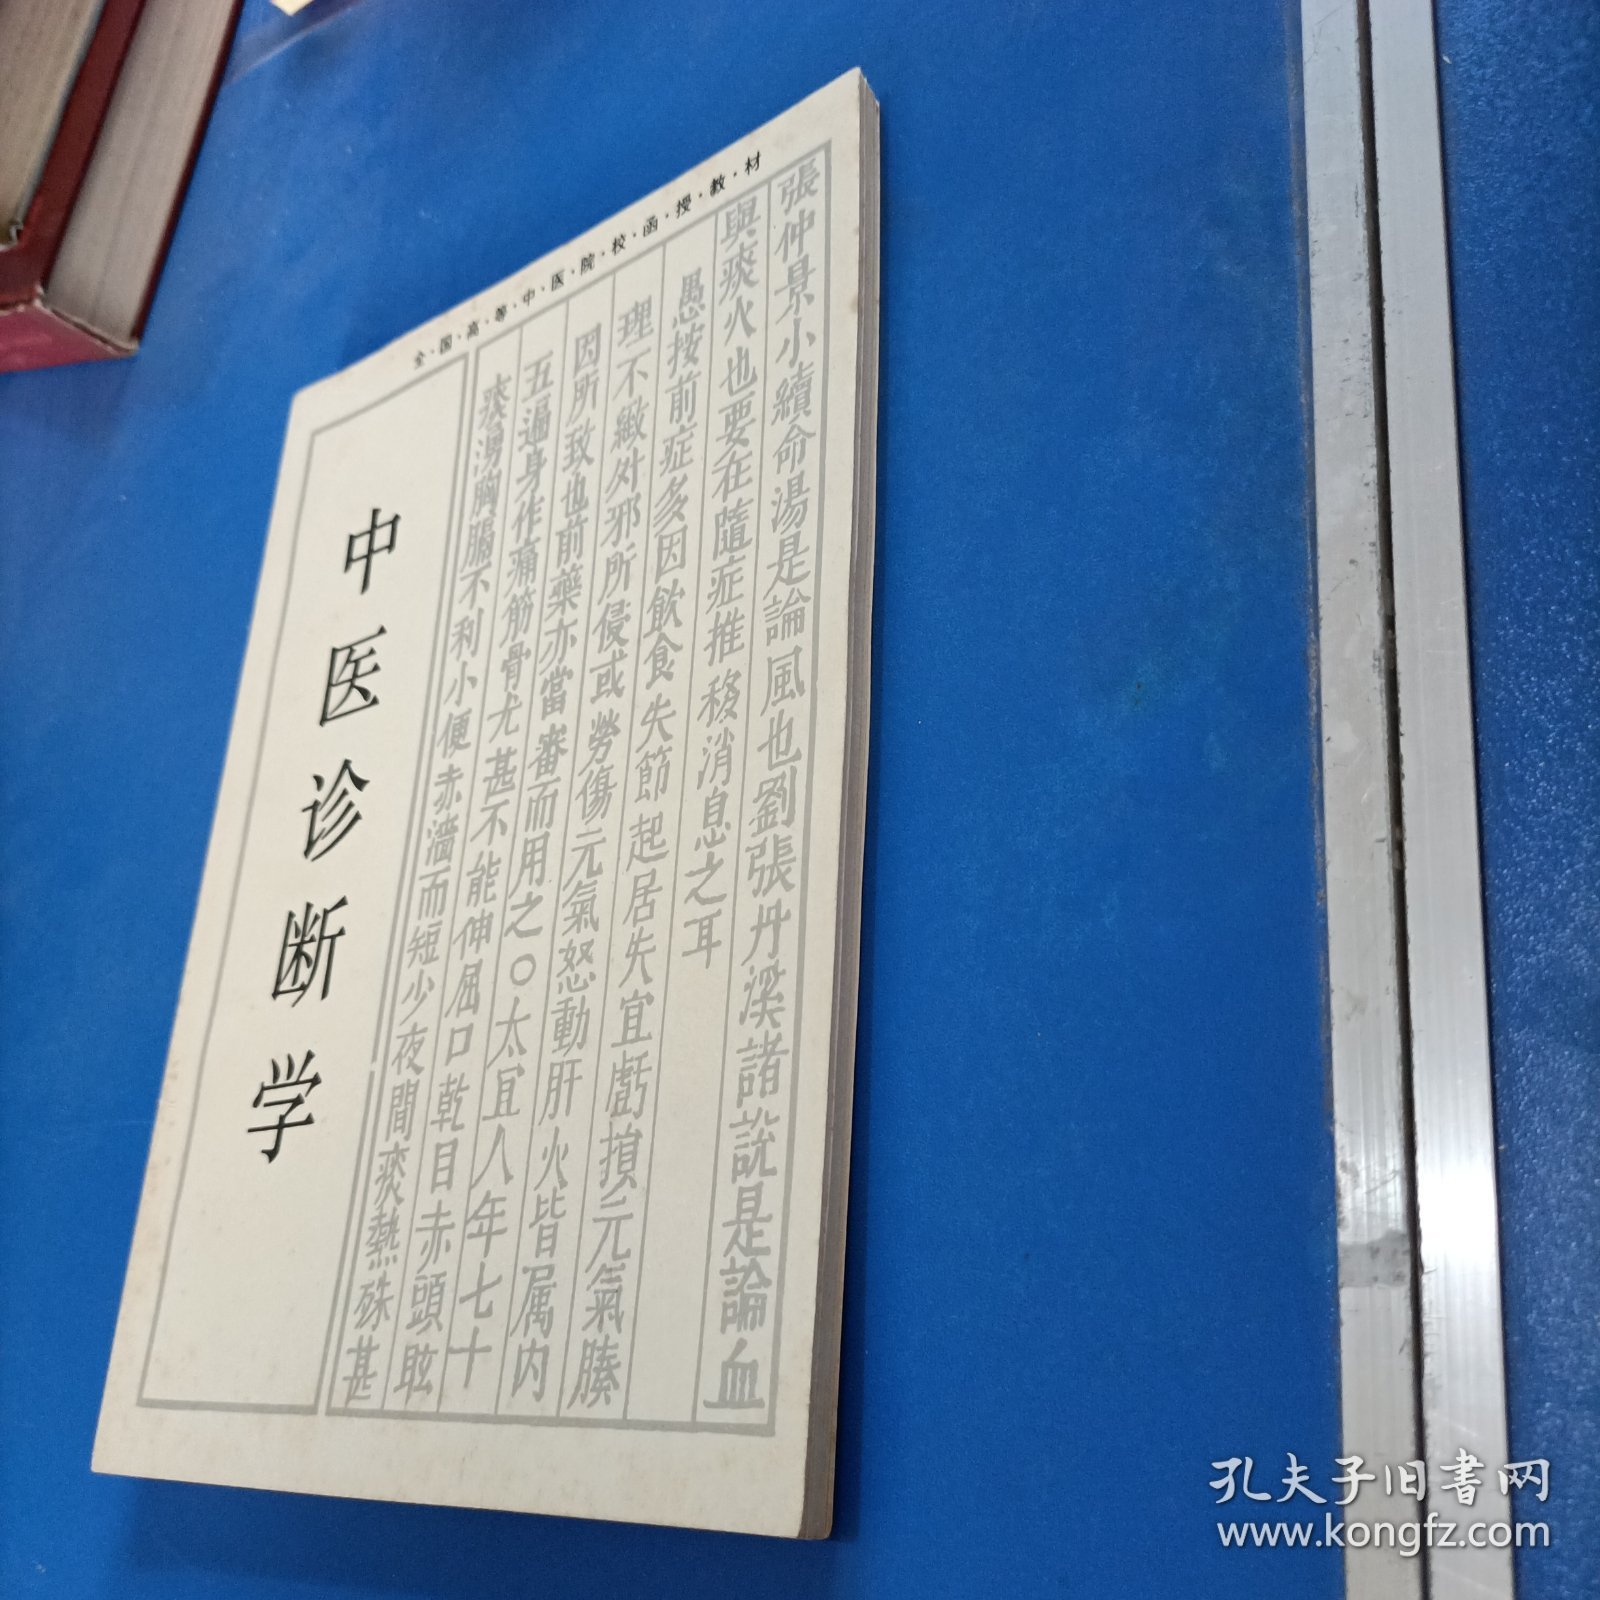 全·国·高·等·中·医·院·校·函·授·教·材
張仲景小續命湯是論風也劉張丹溪諸說是論血
與痰火也要在隨症推移消息之耳
愚按前症多因飲食失節起居失宜虧損元氣腠
理不緻外邪所侵或勞傷元氣怒動肝火皆属内
因所致也前藥亦當審而用之○太宜人年七十
五遍身作痛筋骨尤甚不能伸屈口乾目赤頭眩
痰湧胸膈不利小便赤濇而短少夜間痰熱殊甚
中医诊断学
孔夫子旧书网
www.kongfz.com